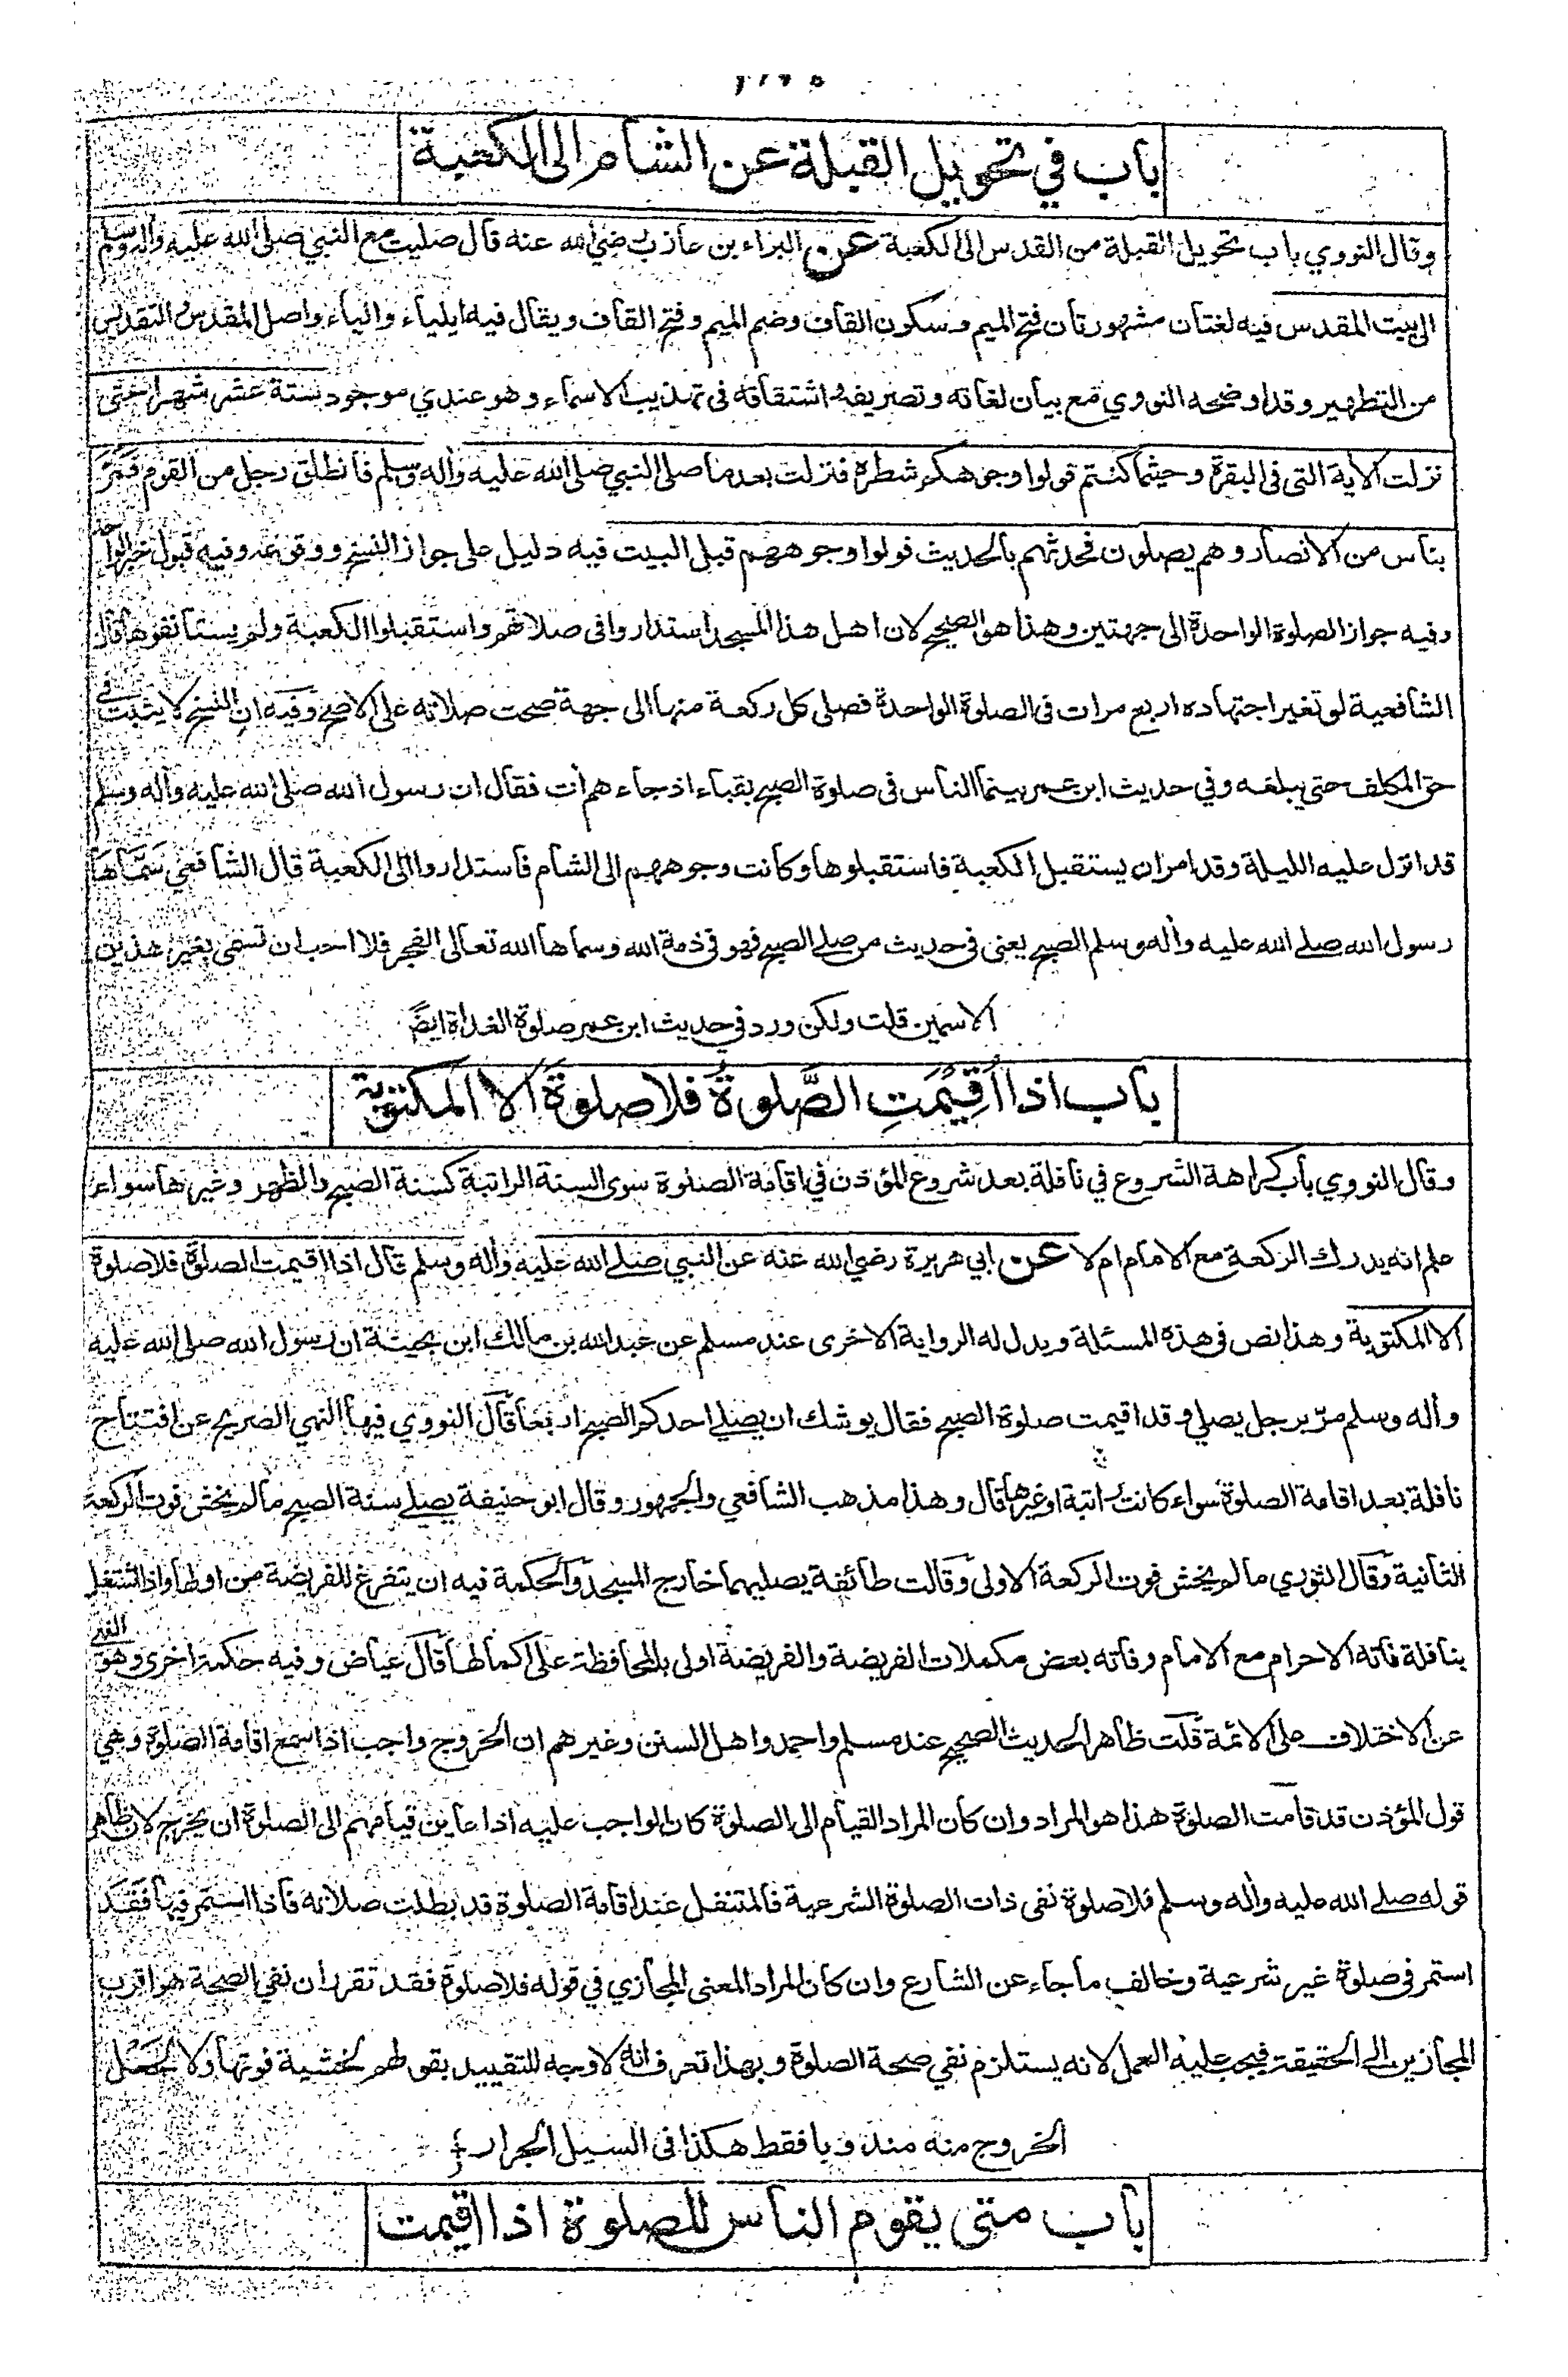 باب في تحويل القبلة عن الشام الى الكعبة
وقال النووي باب تحويل القبلة من القدس الى الكعبة عن البراء بن عازب رضي الله عنه قال صليت مع النبي صلى الله عليه واله وسلم
الى بيت المقدس فيه لغتان مشهورتان فتح الميم وسكون القاف وضم الميم وفتح القاف ويقال فيه ايلياء والياء واصل المقدس والتقديس
من التطهير وقد اوضحه النووي مع بيان لغاته وتصريفه واشتقاقه فى تهذيب الاسماء وهو عندي موجود ستة عشر شهرا حتى
نزلت الاية التى فى البقرة وحيثما كنتم فولوا وجوهكم شطره فنزلت بعد ما صلى النبي صلى الله عليه واله وسلم فانطلق رجل من القوم فمر
بناس من الانصار وهم يصلون فحدثهم بالحديث فولوا وجوههم قبل البيت فيه دليل على جواز النسخ ووقوعه وفيه قبول خبر الواحد
وفيه جواز الصلوة الواحدة الى جهتين وهذا هو الصحيح لان اهل هذا المسجد استداروا فى صلاتهم واستقبلوا الكعبة ولم يستانفوها قال
الشافعية لو تغير اجتهاده اربع مرات فى الصلوة الواحدة فصلى كل ركعة منها الى جهة صحت صلاته على الاصح وفيه ان النسخ لا يثبت في
حق المكلف حتى يبلغه وفي حديث ابن عمر بينما الناس فى صلوة الصبح بقباء اذ جاءهم أت فقال ان رسول الله صلى الله عليه واله وسلم
قد انزل عليه الليلة وقد امر ان يستقبل الكعبة فاستقبلوها وكانت وجوههم الى الشام فاستداروا الى الكعبة قال الشافعي سماها
رسول الله صلى الله عليه واله وسلم الصبح يعنى فى حديث من صلى الصبح فهو في ذمة الله وسماها الله تعالى الفجر فلا احب ان تسمى بغير هذين
الاسمين قلت ولكن ورد في حديث ابن عمر صلوة الغداة ايضً
باب اذا أُقِيْمَتِ الصَّلوةُ فلا صلوةَ الا المكتوبة
وقال النووي باب كراهة الشروع في نافلة بعد شروع المؤذن في اقامة الصلوة سوى السنة الراتبة كسنة الصبح والظهر وغيرها سواء
علم انه يدرك الركعة مع الامام ام لا عن ابي هريرة رضي الله عنه عن النبي صلى الله عليه واله وسلم قال اذا اقيمت الصلوة فلا صلوة
الا المكتوبة وهذا نص فى هذه المسئلة ويدل له الرواية الاخرى عند مسلم عن عبد الله بن مالك ابن بحينة ان رسول الله صلى الله عليه
واله وسلم مرّ برجل يصلي وقد اقيمت صلوة الصبح فقال يوشك ان يصلي احدكم الصبح اربعا قال النووي فيها النهي الصريح عن افتتاح
نافلة بعد اقامة الصلوة سواء كانت راتبة او غيرها قال وهذا مذهب الشافعي والجمهور وقال ابو حنيفة يصلي سنة الصبح ما لم يخش فوت الركعة
الثانية وقال الثوري ما لم يخش فوت الركعة الاولى وقالت طائفة يصليهما خارج المسجد والحكمة فيه ان يتفرغ للفريضة من اولها واذا اشتغل
بنافلة فاته الاحرام مع الامام وفاته بعض مكملات الفريضة والفريضة اولى بالمحافظة على اكمالها قال عياض وفيه حكمة اخرى وهو النهي
عن الاختلاف على الائمة قلت ظاهر الحديث الصحيح عند مسلم واحمد واهل السنن وغيرهم ان الخروج واجب اذا سمع اقامة الصلوة وهي
قول المؤذن قد قامت الصلوة هذا هو المراد وان كان المراد القيام الى الصلوة كان الواجب عليه اذا عاين قيامهم الى الصلوة ان يخرج لان ظاهر
قوله صلى الله عليه واله وسلم فلا صلوة نفى ذات الصلوة الشرعية فالمتنفل عند اقامة الصلوة قد بطلت صلاته فاذا استمر فيها فقد
استمر فى صلوة غير شرعية وخالف ما جاء عن الشارع وان كان المراد المعنى المجازي في قوله فلا صلوة فقد تقرر ان نفي الصحة هو اقرب
المجازين الى الحقيقة فيجب عليه العمل لانه يستلزم نفي صحة الصلوة وبهذا تعرف انه لا وجه للتقييد بقولهم لخشية فوتها ولا لجعل
الخروج منه مندوبا فقط هكذا فى السيل الجرار
باب متى يقوم الناس للصلوة اذا اقيمت